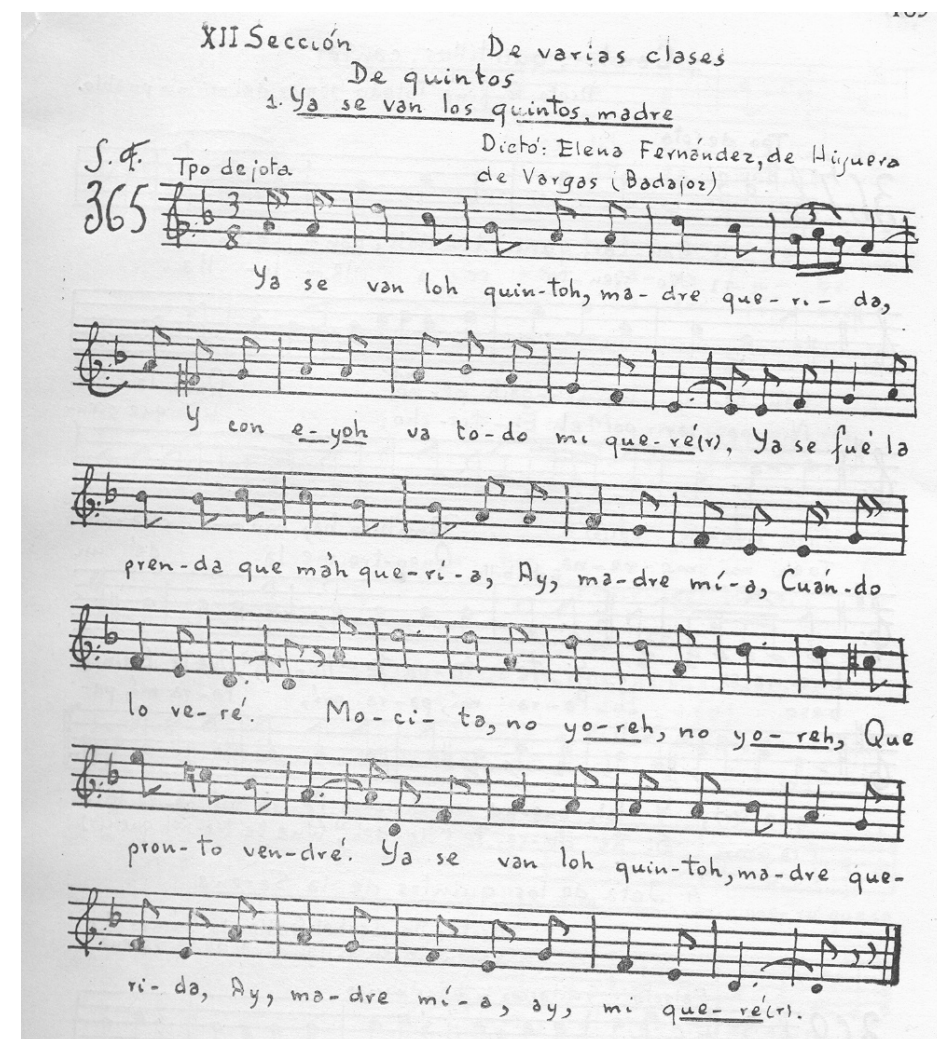 XII Sección De varias clases
De quintos
1. Ya se van los quintos, madre
Dictó: Elena Fernández, de Higuera
de Vargas (Badajoz)
S. F.
Tpo de jota
365
3
8
3
Ya se van loh quin-toh, ma-dre que-ri-da,
Y con e-yoh va to-do mi que-ré(r), Ya se fué la
pren-da que máh que-rí-a, Ay, ma-dre mí-a, Cuán-do
lo ve-ré. Mo-ci-ta, no yo-reh, no yo-reh, Que
pron-to ven-dré. Ya se van loh quin-toh, ma-dre que-
ri-da, Ay, ma-dre mí-a, ay, mi que-ré(r).